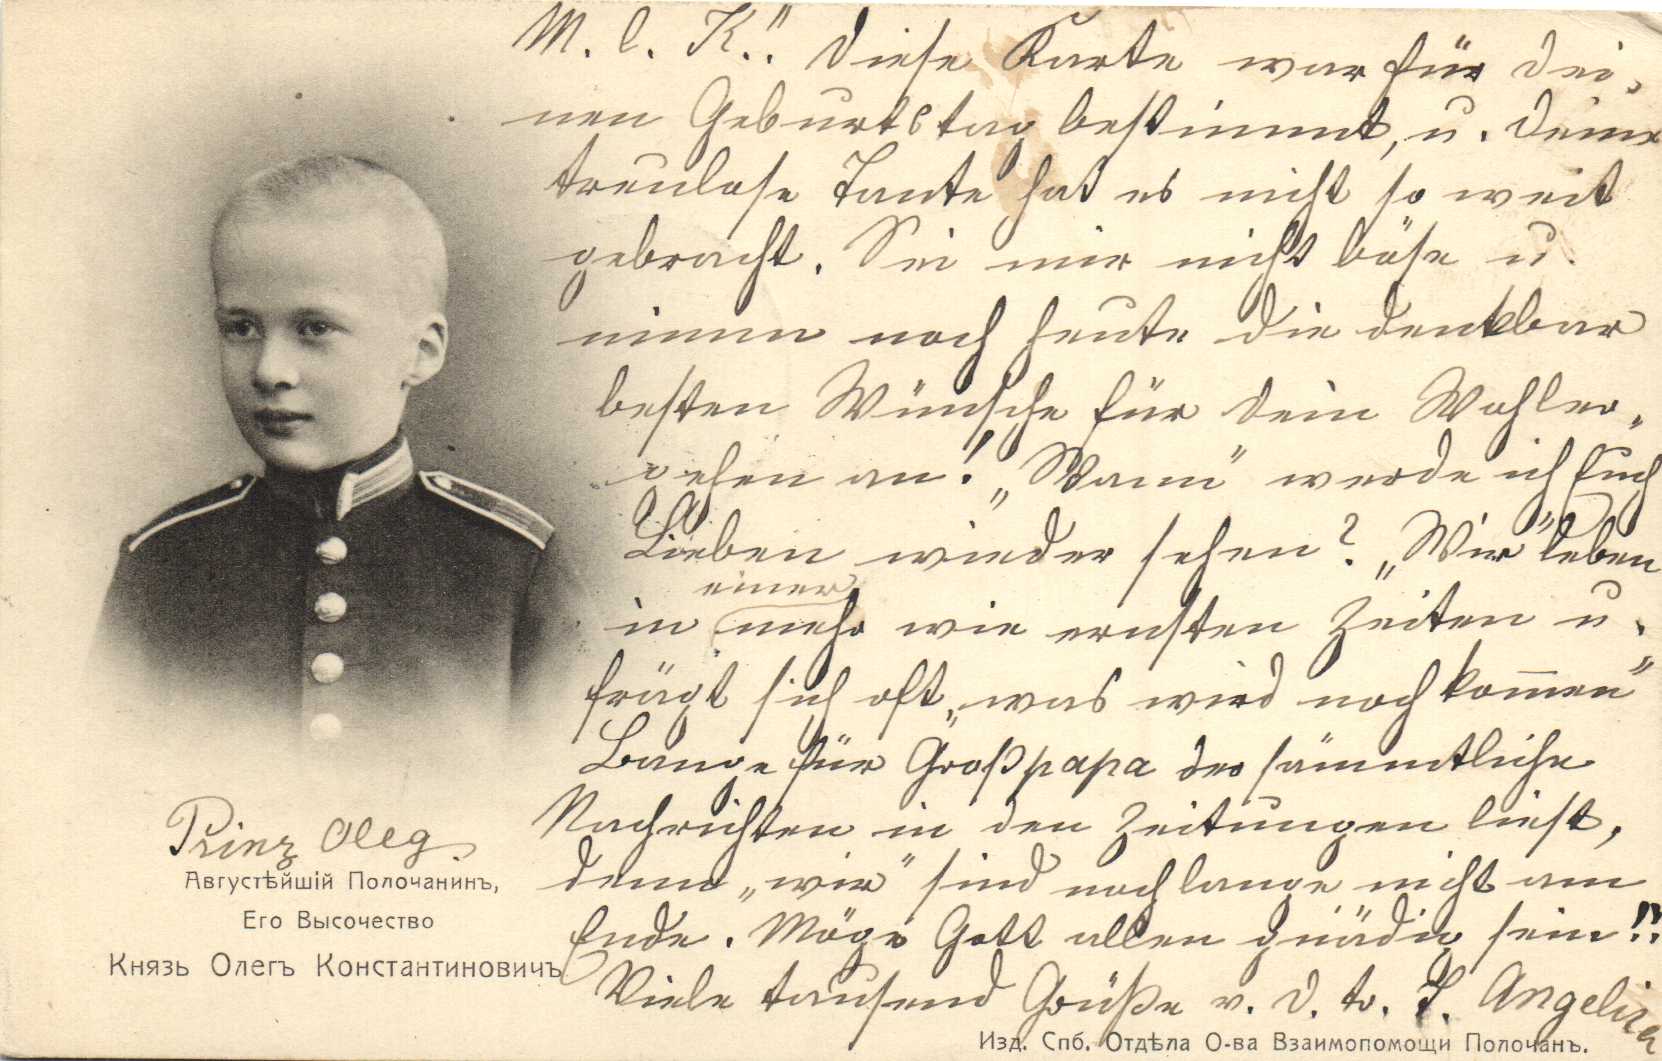 M. l. K.!! Diese Karte war für dei-
nen Geburtstag bestimmt, u. deine
treulose Tante hat es nicht so weit
gebracht. Sei mir nicht böse u.
nimm noch heute die denkbar
besten Wünsche für dein Wohler-
gehen an! „Wann" werde ich Euch
Lieben wieder sehen? „Wir" leben
einer
in mehr wie ernsten Zeiten u.
frägt sich oft „was wird noch kommen"
Bange für Großpapa der sämmtliche
Nachrichten in den Zeitungen liest,
denn „wir" sind noch lange nicht am
Ende. Möge Gott allen gnädig sein!!
Viele tausend Grüße v. d. tr. T. Angelica
Prinz Oleg.
Августѣйшій Полочанинъ,
Его Высочество
Князь Олегъ Константиновичъ
Изд. Спб. Отдѣла О-ва Взаимопомощи Полочанъ.